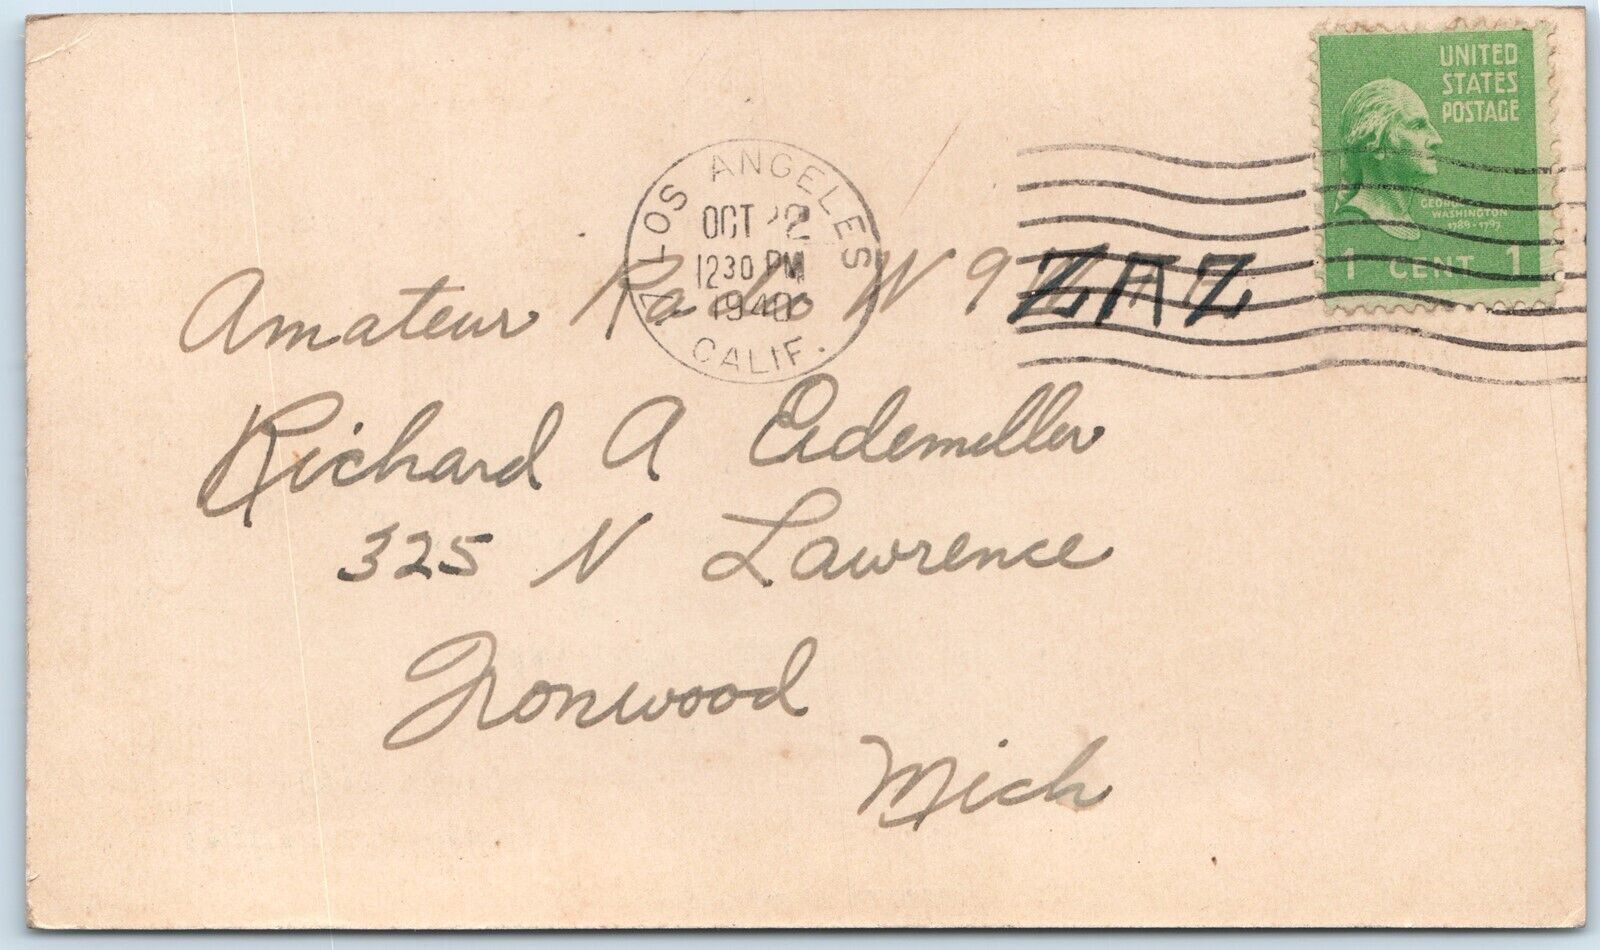 UNITED
STATES
POSTAGE
GEORGE
WASHINGTON
1789-1797
1 CENT 1
LOS ANGELES
OCT 2
12 30 PM
1940
CALIF.
Amateur Radio W 9 ZAZ
Richard A Eidemiller
325 N Lawrence
Ironwood
Mich